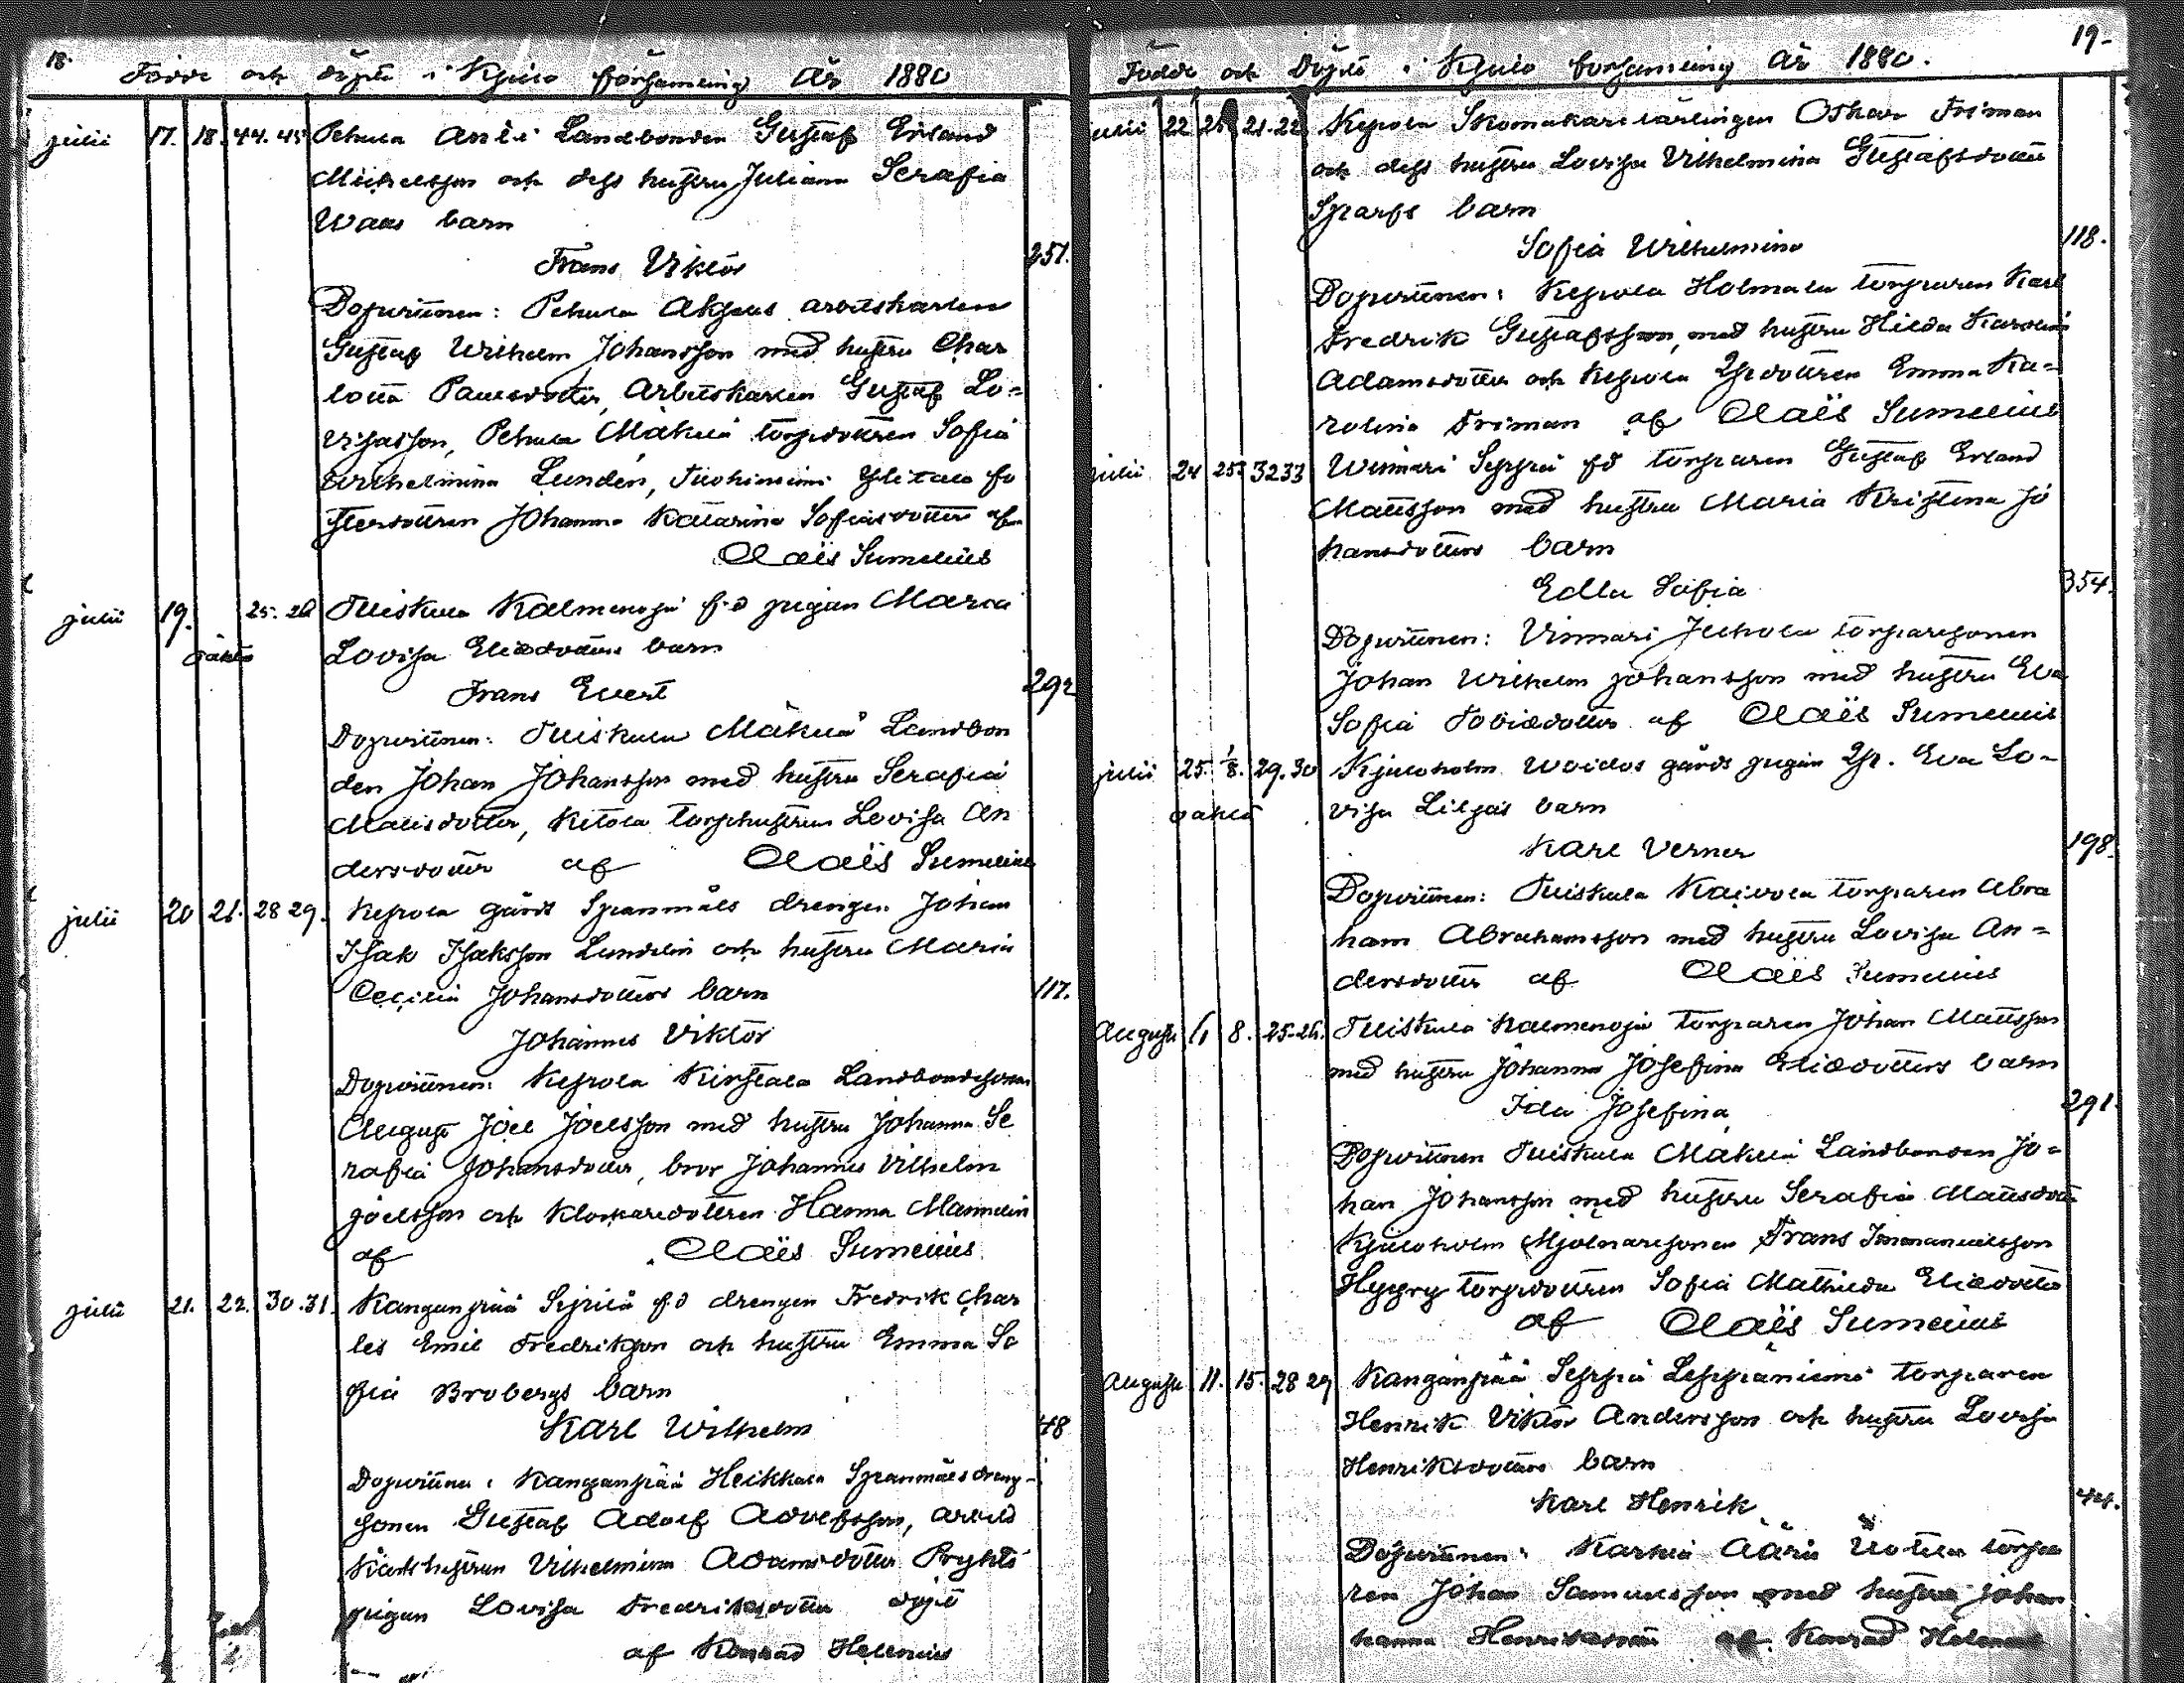 18.
Födde och döpte i Kjulo församling År 1880
julii 17. 18. 44. 45 Pehula Anti Landbonden Gustaf Erland
Michelsson och dess hustru Juliana Serafia
Waas barn
Frans Viktor 251.
Dopvittnen: Pehula arbetskarlen
Gustaf Wilhelm Johansson med hustru Char
lotta Paulsdotter, Arbetskarlen Gustaf Lo=
visasson, Pehula Mäkilä torpdottren Sofia
Wilhelmina Lundén, Tuohiniemi Ylitalo fo
sterdottren Johanna Katarina Sofiasdotter af
Claës Sumelius
julii 19. 25. 26 Tuiskula Kalmenoja f.d. pigan Maria
oäkta Lovisa Eliædotters barn
Frans Evert 292
Dopvittnen: Tuiskula Mäkilä Landbon
den Johan Johansson med hustru Serafia
Mattsdotter, Ketola torphustrun Lovisa An
dersdotter af Claës Sumelius
julii 20 21. 28 29. Kepola gårds Spanmåls drengen Johan
Isak Isaksson Lundelin och hustru Maria
Cecilia Johansdotters barn 117.
Johannes Viktor
Dopvittnen: Kepola Kirstala Landbondesonen
August Joel Joelsson med hustru Johanna Se
rafia Johansdotter, bror Johannes Vilhelm
Joelsson och Klockaredottren Hanna Mannelin
af Claës Sumelius.
julii 21. 22. 30.31. Kanganpää Seppilä f.d drengen Fredrik Char
les Emil Fredriksson och hustru Emma So
fia Brobergs barn
Karl Wilhelm 48
Dopvittnen: Kanganpää Heikkala Spanmålsdreng-
sonen Gustaf Adolf Adolfsson, arbets
karlshustrun Vilhelmina Adamsdotter
pigan Lovisa Fredriksdotter döpt
af Konrad Helenius
19-
Födde och Döpte i Kjulo församling År 1880.
julii 22 25 21.22 Kepola Skomakarelärlingen Oskar Friman
och dess hustru Lovisa Vilhelmina Gustafsdotter
Sparfs barn
Sofia Wilhelmina 118.
Dopvittnen: Kepola Holmala torparen Karl
Fredrik Gustafsson, med hustru Hilda Karolina
Adamsdotter och Kepola Spdottren Emma Ka=
rolina Friman af Claës Sumelius
julii 24 25. 32 33 Wiimari Seppä fd torparen Gustaf Erland
Mattsson med hustru Maria Kristina Jo
hansdotters barn
Edla Sofia 354.
Dopvittnen: Viimari Juhola torparesonen
Johan Wilhelm Johansson med hustru Eva
Sofia Tobiædotter af Claës Sumelius
julii 25. 1/8. 29.30 Kjuloholm Woidos gårds pigan Eva Lo-
oäkta visa Liljas barn
Karl Verner 198.
Dopvittnen: Tuiskula Kaivola torparen Abra
ham Abrahamsson med hustru Lovisa An=
dersdotter af Claës Sumelius
Augusti 6 8. 25-26. Tuiskula Kalmenoja torparen Johan Mattsson
med hustru Johanna Josefina Eliædotters barn
Ida Josefina 291.
Dopvittnen Tuiskula Mäkilä Landbonden Jo=
han Johansson med hustru Serafia Mattsdotter
Kjuloholm Mjölnaresonen Frans Immanuelsson
Hyppry torpdottren Sofia Mathilda Eliædotter
af Claës Sumelius
Augusti 11. 15. 28 29 Kanganpää Seppä Leppäniemi torparen
Henrik Viktor Andersson och hustru Lovisa
Henriksdotters barn
Karl Henrik 44.
Dopvittnen: Karhia Ääri Uotila torpa
ren Johan Samuelsson med hustru Johan
hanna Henriksdotter af Konrad Helenius